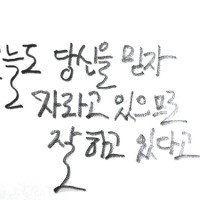 오늘도 당신을 믿자
자라고 있으므로
잘 하고 있다고